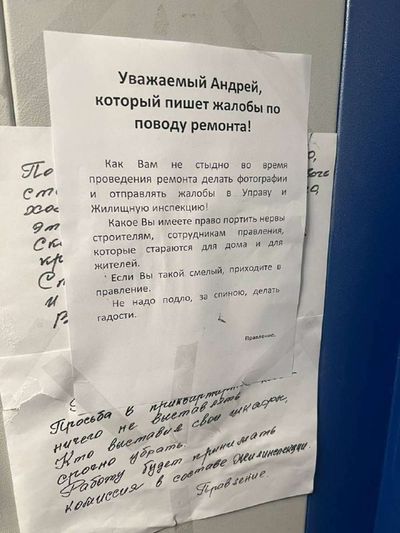 Уважаемый Андрей,
который пишет жалобы по
поводу ремонта!
Как Вам не стыдно во время
проведения ремонта делать фотографии
и отправлять жалобы в Управу и
Жилищную инспекцию!
Какое Вы имеете право портить нервы
строителям, сотрудникам правления,
которые стараются для дома и для
жителей.
Если Вы такой смелый, приходите в
правление.
Не надо подло, за спиною, делать
гадости.
Правление.
Просьба в
ничего не выставлять
Кто выставил свои шкафчик,
срочно убрать.
Работу будет принимать
комиссия в составе Жилинспекции
Правление.